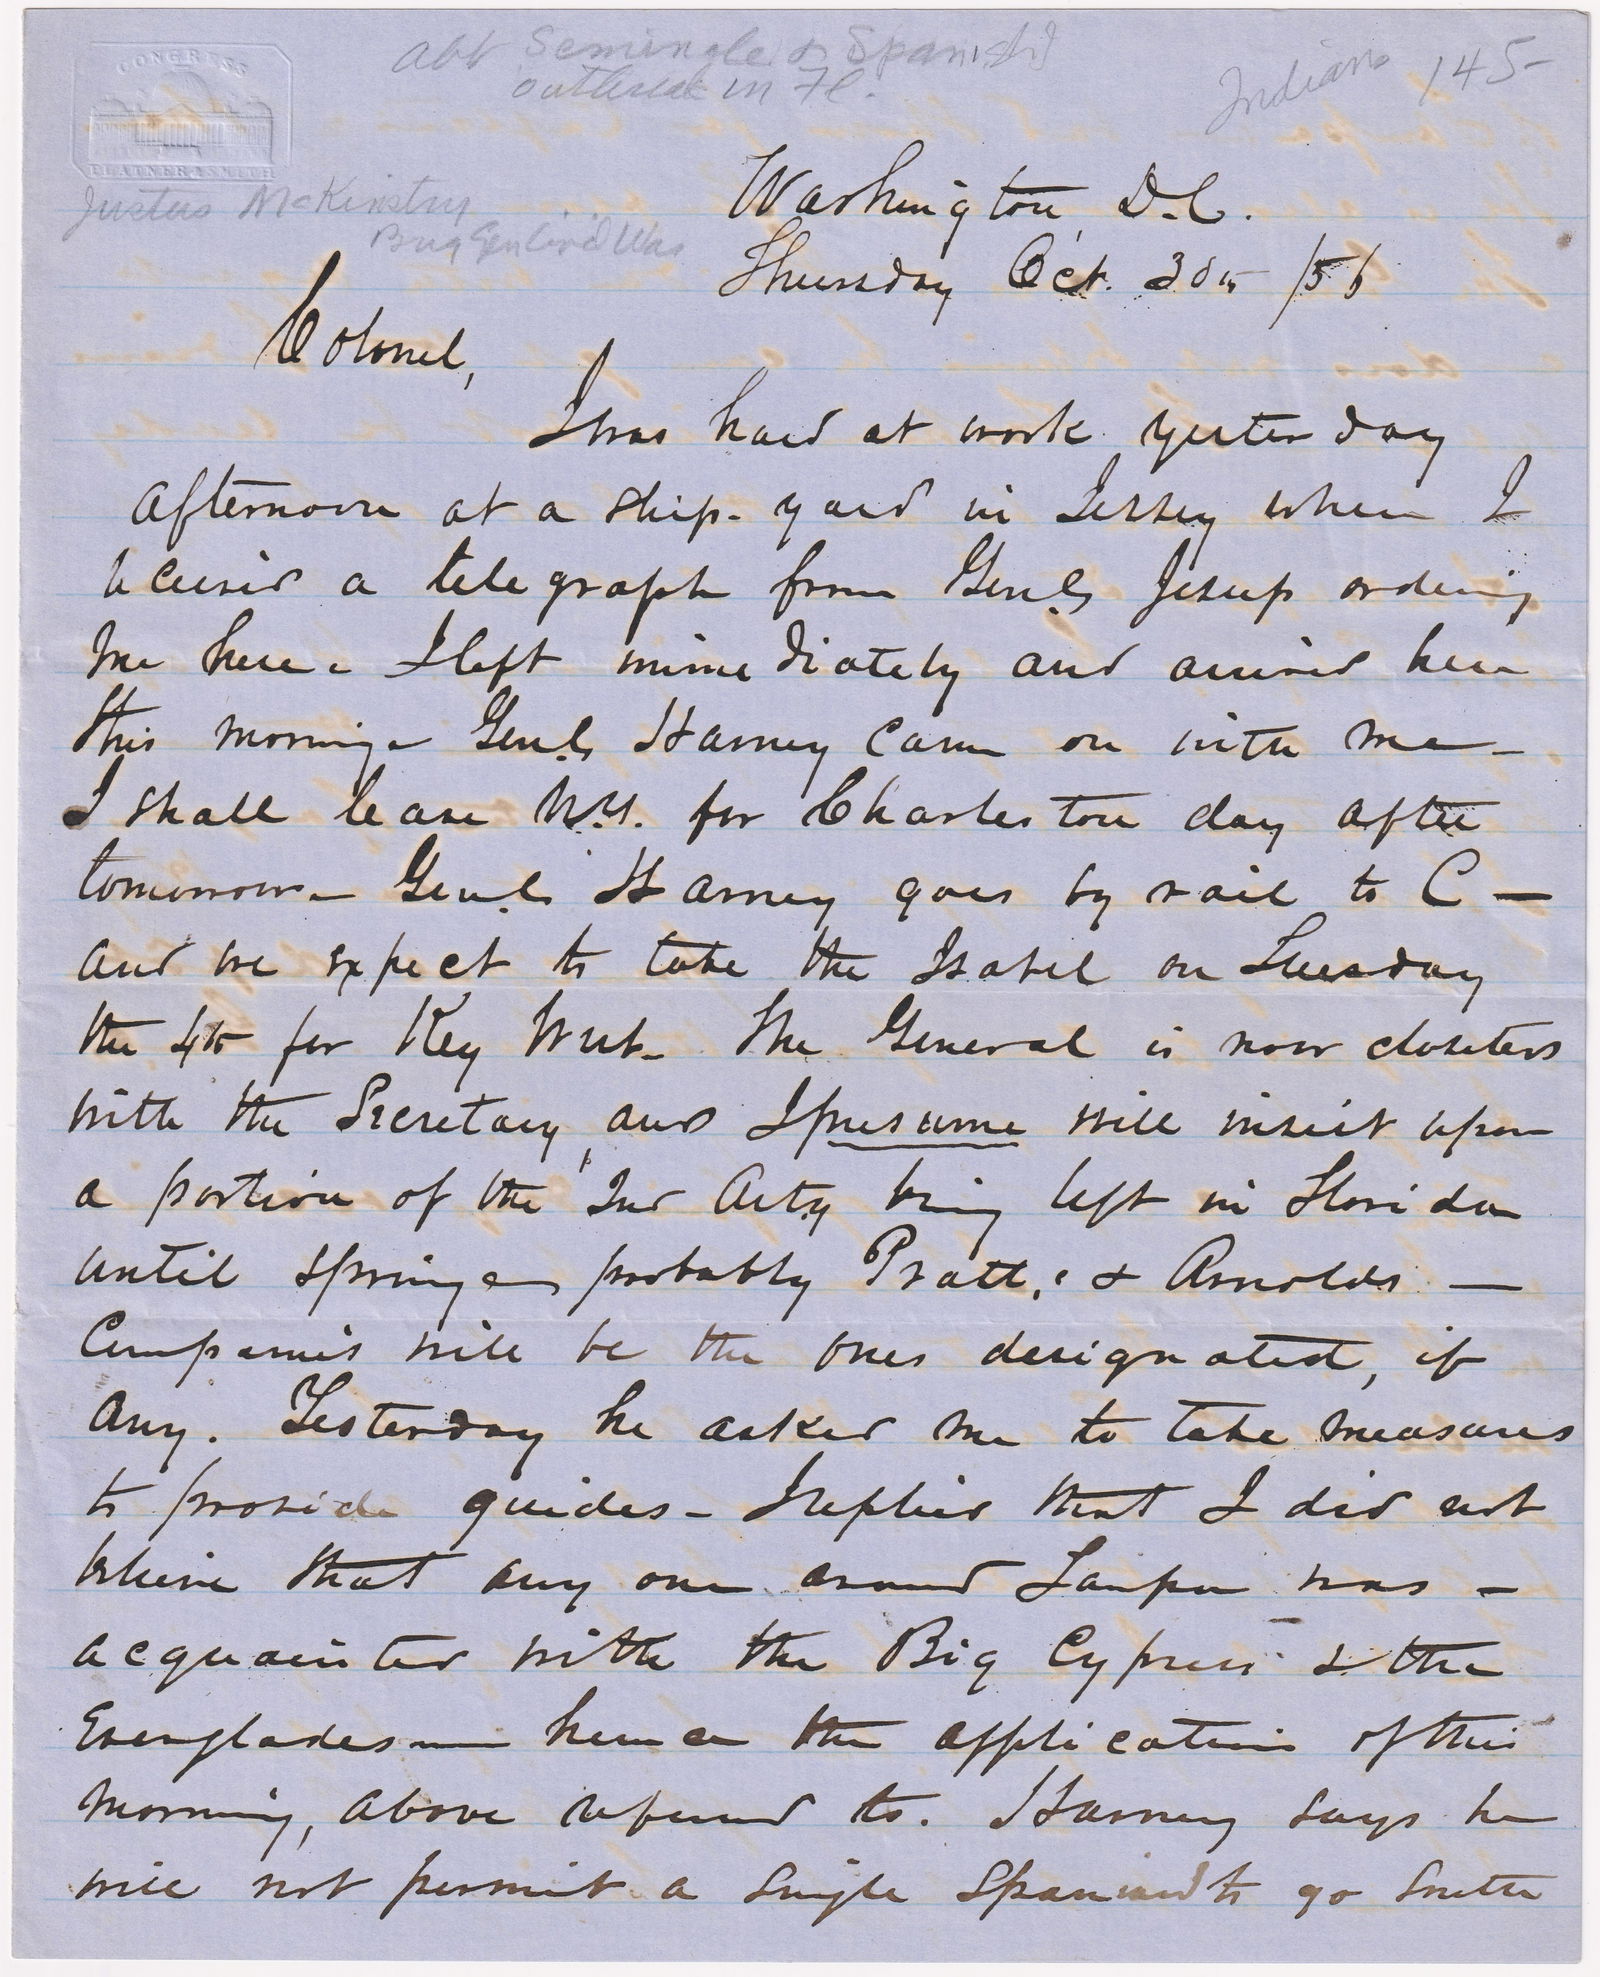 CONGRESS
PLATNER & SMITH
abt Seminole & Spanish
outbreak in Fl.
Indians 145-
Justus McKinstry
Brig Gen Civil War
Washington, D.C.
Thursday Oct. 30th /56
Colonel,
I was hard at work yesterday
afternoon at a ship-yard in Jersey when I
received a telegraph from Genl. Jesup ordering
me here - I left immediately and arrived here
this morning - Genl. Harney came on with me -
I shall leave N.Y. for Charleston day after
tomorrow - Genl. Harney goes by rail to C -
and we expect to take the Isabel on Tuesday
the 4th for Key West - The General is now closeted
with the Secretary, and I presume will insist upon
a portion of the 2nd Arty being left in Florida
until spring - probably Pratt's & Arnolds -
Companies will be the ones designated, if
any. Yesterday he asked me to take measures
to provide guides - I replied that I did not
believe that any one around Tampa was -
acquainted with the Big Cypress & the
Everglades — hence the application of this
morning, above referred to. Harney says he
will not permit a single Spaniard to go South